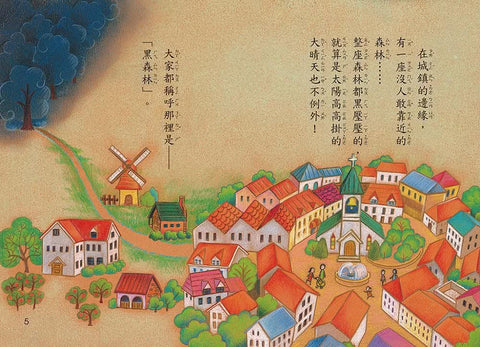 在城鎮的邊緣，
有一座沒人敢靠近的
森林……
整座森林都黑壓壓的，
就算是太陽高高掛的
大晴天也不例外！
大家都稱呼那裡是——
「黑森林」。
5